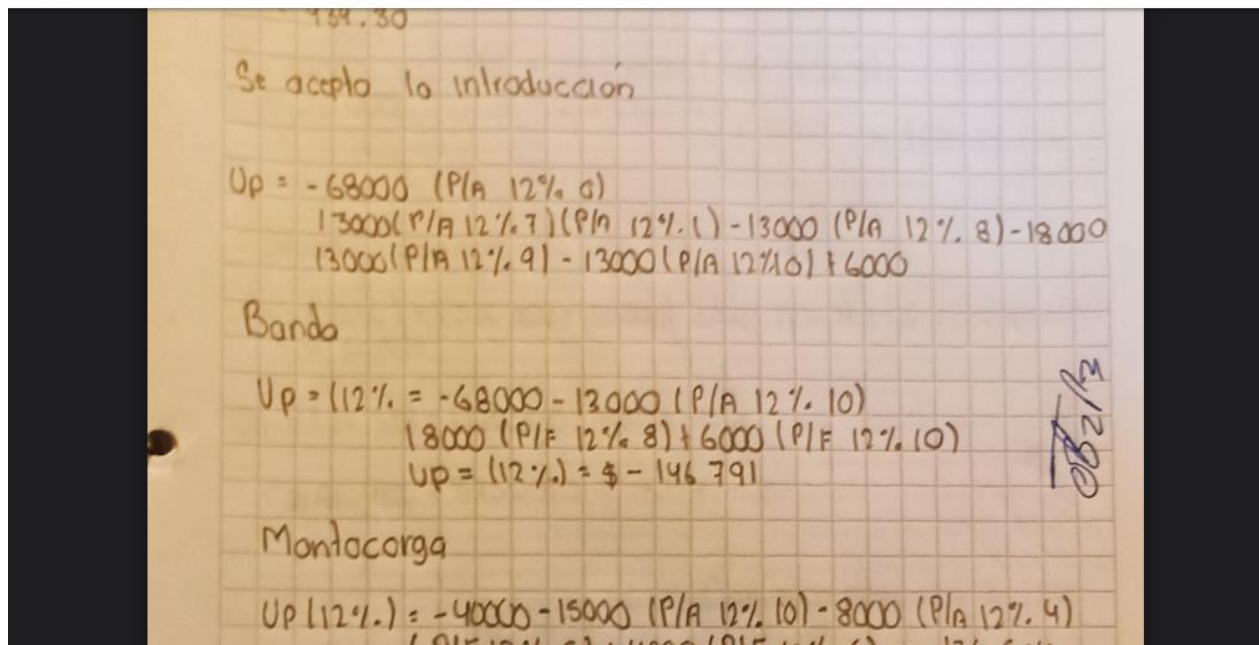 984.30
Se acepto la introducción
Up = -68000 (P/A 12% 0)
13000(P/A 12% 7)(P/A 12% 1) - 13000 (P/A 12% 8) - 18000
13000(P/A 12% 9) - 13000(P/A 12%10) + 6000
Banda
Up = (12% = -68000 - 13000 (P/A 12% 10)
18000 (P/F 12% 8) + 6000 (P/F 12% 10)
Up = (12%) = $ - 146 791
Montacarga
UP (12%) = -40000 - 15000 (P/A 12% 10) - 8000 (P/A 12% 4)